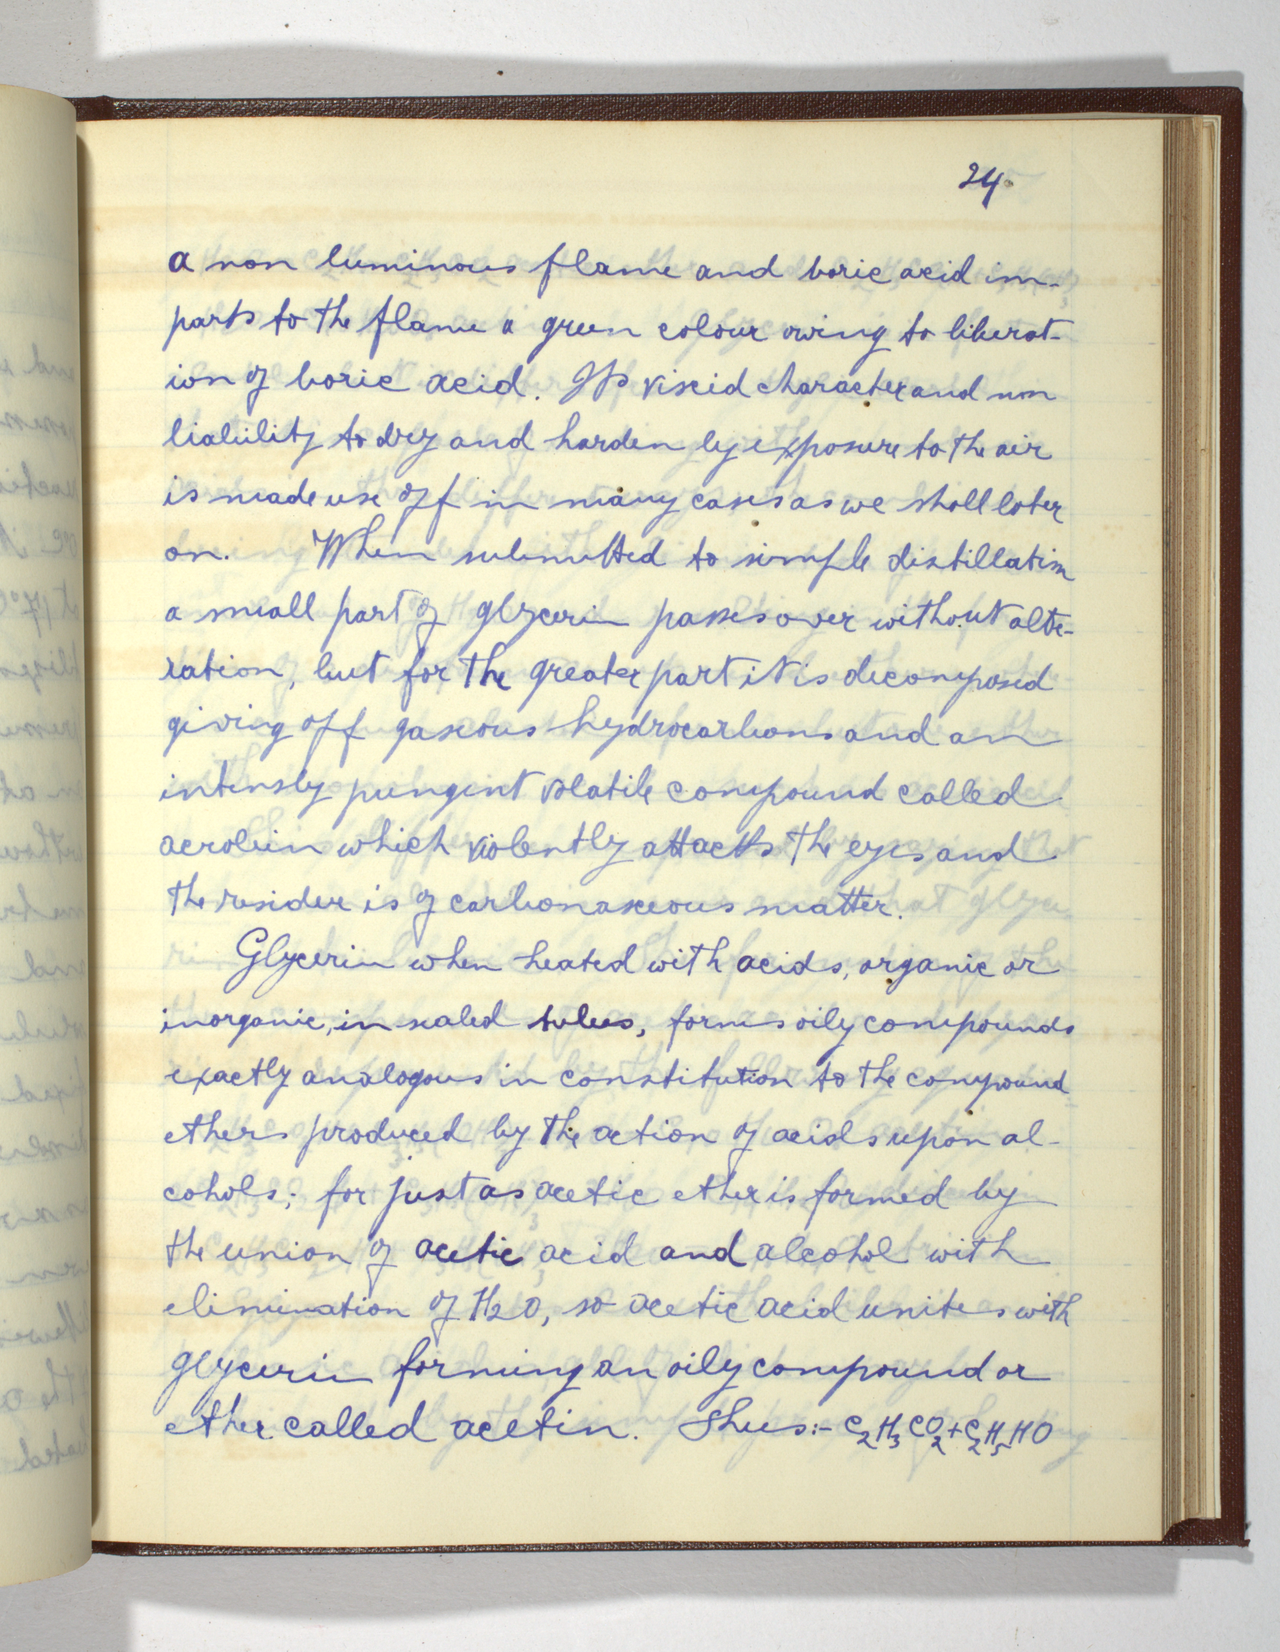 24.
a non luminous flame and boric acid im-
parts to the flame a green colour owing to liberat-
ion of boric acid. Its viscid character and non
liability to dry and harden by exposure to the air
is made use off in many cases as we shall later
on. When submitted to simple distillation
a small part of glycerin passes over without alte-
ration, but for the greater part it is decomposed
giving off gaseous hydrocarbons and an
intensly pungent volatile compound called
acrolein which violently attacks the eyes and
the residue is of carbonaseous matter.
Glycerin when heated with acids, organic or
inorganic, in sealed tubes, forms oily compounds
exactly analogous in constitution to the compound
ethers produced by the action of acids upon al-
cohols; for just as acetic ether is formed by
the union of acetic acid and alcohol with
elimination of H2O, so acetic acid unites with
glycerin forming an oily compound or
ether called acetin. Thus:- C2H3CO2+C2H5HO